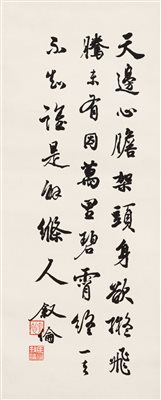 天邊心膽架頭身欲擬飛
騰未有因萬里碧霄終一去
不知誰是解絛人 叙倫